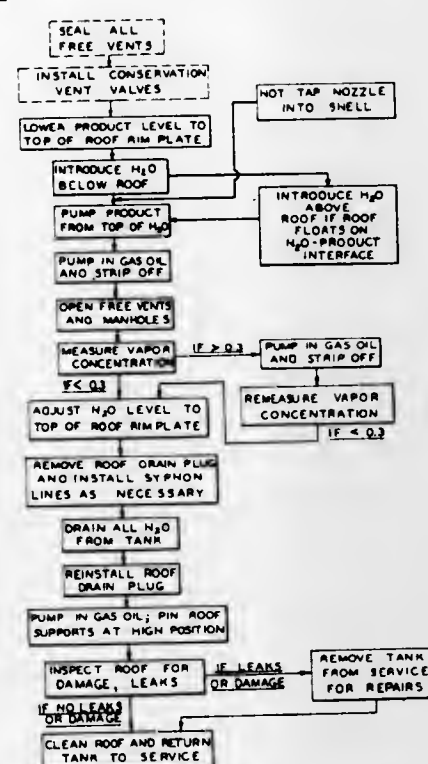 SEAL ALL
FREE VENTS
INSTALL CONSERVATION
VENT VALVES
HOT TAP NOZZLE
INTO SHELL
LOWER PRODUCT LEVEL TO
TOP OF ROOF RIM PLATE
INTRODUCE H₂O
BELOW ROOF
INTRODUCE H₂O
ABOVE
ROOF IF ROOF
FLOATS ON
H₂O-PRODUCT
INTERFACE
PUMP PRODUCT
FROM TOP OF H₂O
PUMP IN GAS OIL
AND STRIP OFF
OPEN FREE VENTS
AND MANHOLES
MEASURE VAPOR
CONCENTRATION
IF > 0.3
PUMP IN GAS OIL
AND STRIP OFF
REMEASURE VAPOR
CONCENTRATION
IF < 0.3
IF < 0.3
ADJUST H₂O LEVEL TO
TOP OF ROOF RIMPLATE
REMOVE ROOF DRAIN PLUG
AND INSTALL SYPHON
LINES AS NECESSARY
DRAIN ALL H₂O
FROM TANK
REINSTALL ROOF
DRAIN PLUG
PUMP IN GAS OIL; PIN ROOF
SUPPORTS AT HIGH POSITION
INSPECT ROOF FOR
DAMAGE, LEAKS
IF LEAKS
OR DAMAGE
REMOVE TANK
FROM SERVICE
FOR REPAIRS
IF NO LEAKS
OR DAMAGE
CLEAN ROOF AND RETURN
TANK TO SERVICE